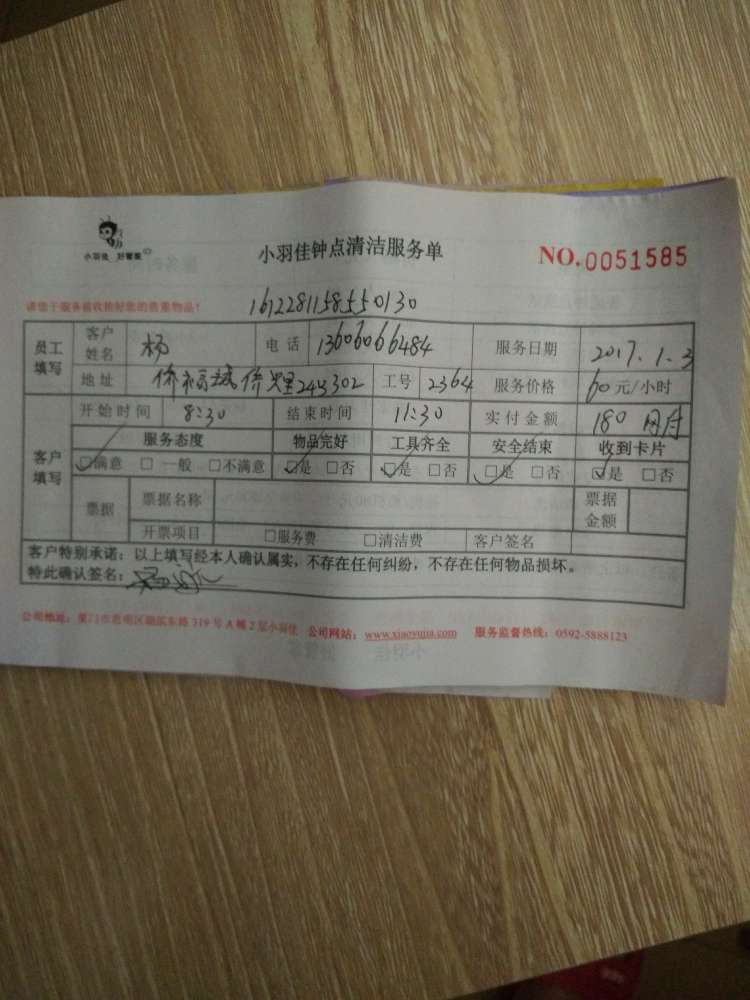 小羽佳 好管家
小羽佳钟点清洁服务单
NO.0051585
请您于服务前收拾好您的贵重物品!
161228115855013​0
员工填写 客户姓名 杨 电话 13606066484 服务日期 2017.1.3
地址 侨福城侨 里 302 工号 2364 服务价格 60元/小时
客户填写 开始时间 8:30 结束时间 11:30 实付金额 180 网付
服务态度 物品完好 工具齐全 安全结束 收到卡片
☑满意 □一般 □不满意 ☑是 □否 ☑是 □否 ☑是 □否 ☑是 □否
票据 票据名称 票据金额
开票项目 □服务费 □清洁费 客户签名
客户特别承诺:以上填写经本人确认属实,不存在任何纠纷,不存在任何物品损坏。
特此确认签名:
公司地址:厦门市思明区湖滨东路319号A幢2层小羽佳 公司网站:www.xiaoyujia.com 服务监督热线:0592-5888123